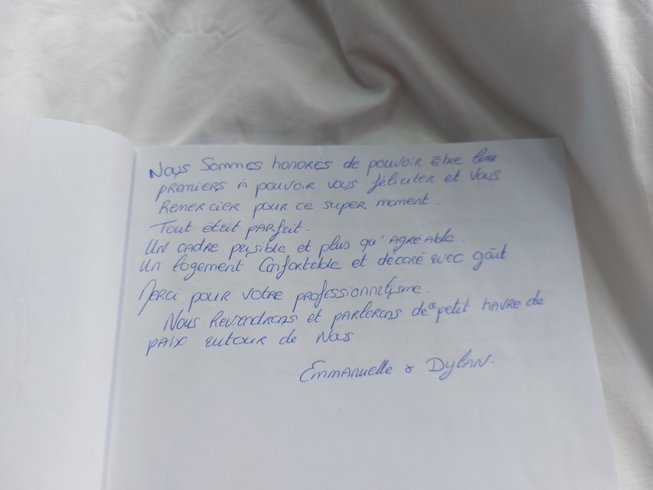 Nous sommes honorés de pouvoir être les
premiers à pouvoir vous féliciter et vous
remercier pour ce super moment.
Tout était parfait.
Un cadre paisible et plus qu'agréable.
Un logement confortable et décoré avec goût
Merci pour votre professionnalisme.
Nous reviendrons et parlerons de ce petit havre de
paix autour de nous.
Emmanuelle & Dylan.